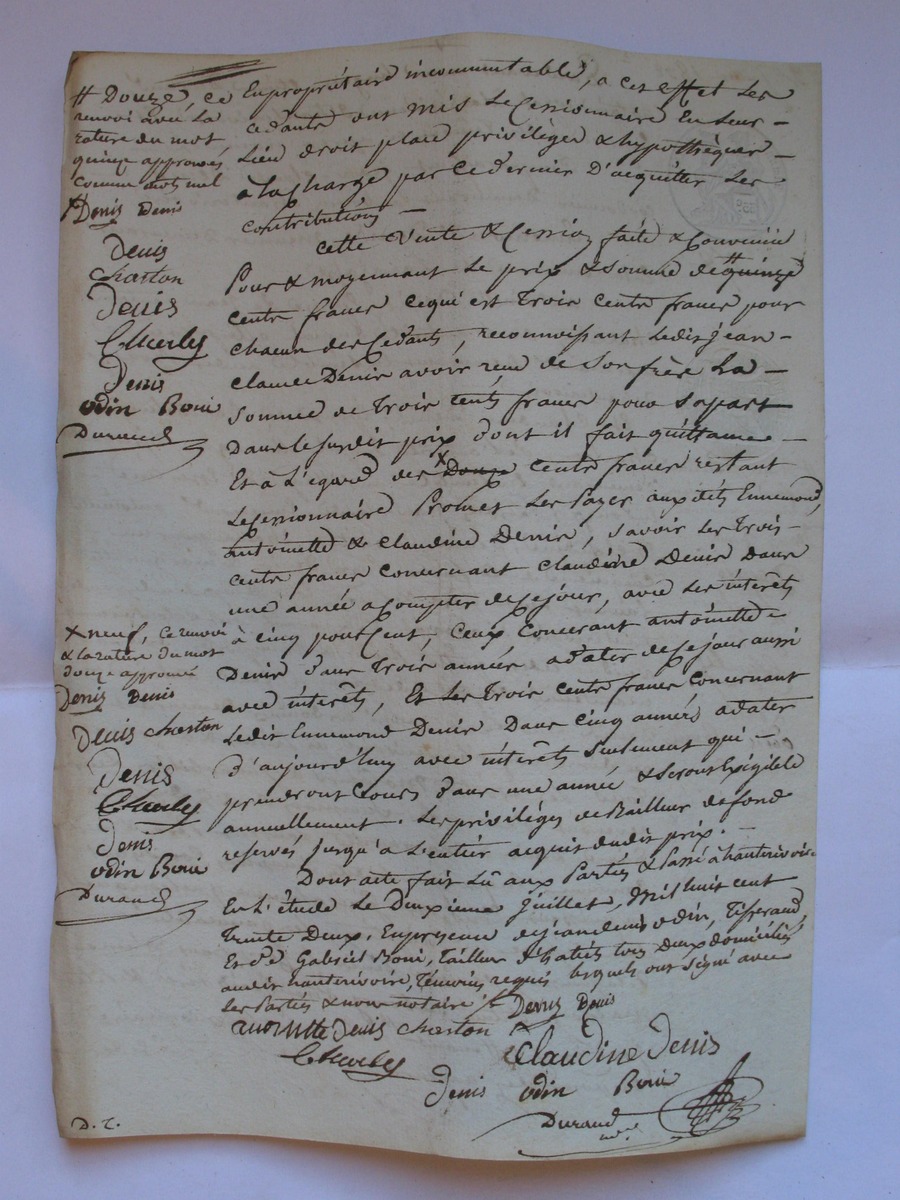 # Douze, ce
renvoi avec la
rature du mot
quinze approuvés
comme mots nul
Denis Denis
Denis
Charton
Denis
Charly
Denis
odin Boni
Durand
En propriétaire incommutable, a cet effet Les
cedants ont mis Le Cessionnaire En Leur –
Lieu droit place privilèges & hypothèques –
à la charge par ce dernier D'acquitter Les
contributions –
Cette Vente & Cession faite & Convenüe
Pour & moyennant Le prix & Somme de # quinze
cents francs ce qui est Trois cents francs pour
chacun des Cedants, reconnoissant Ledit jean –
claude Denis avoir reçu de Son frère La –
Somme de Trois cents francs pour Sa part
Dans le Susdit prix dont il fait quittance –
Et à L'egard des x Douze cents francs restant
Le Cessionnaire Promet Les Payer auxdits Ennemond,
antoinette & Claudine Denis, Savoir Les Trois –
cents francs Concernant Claudine Denis Dans
une année a Compter de Ce jour, avec Les intérêts
à Cinq pour Cent, Ceux Concernant antoinette =
Denis dans Trois années a dater de Ce jour aussi
avec intérêts, Et Les Trois Cents francs Concernant
Ledit Ennemond Denis Dans Cinq années a dater
D'aujourd'huy avec intérêts Seulement qui –
prendront Cours dans une année & Seront Exigible
annuellement. Les privilèges de Bailleur de fond
reservés jusqu'a L'entier acquit dudit prix. –
x neuf, ce renvoi
& la rature du mot
douze approuvé
Denis Denis
Denis Charton
Denis
Charly
Denis
odin Boni
Durand
Dont acte fait Lû aux Parties & Passé à hauterivoire
En L'étude Le Deuxieme juillet, Mil huit cent
Trente Deux, En presence de jean denis odin, Tisserand,
Et de Gabriel Boni, Tailleur d'habits tous Deux domiciliés
audit hauterivoire, Témoins requis Lesquels ont Signé avec
Les Parties & nous notaire
Denis Denis
antoinette Denis Charton
Claudine Denis
Charly
Denis odin Boni
Durand
D. T.